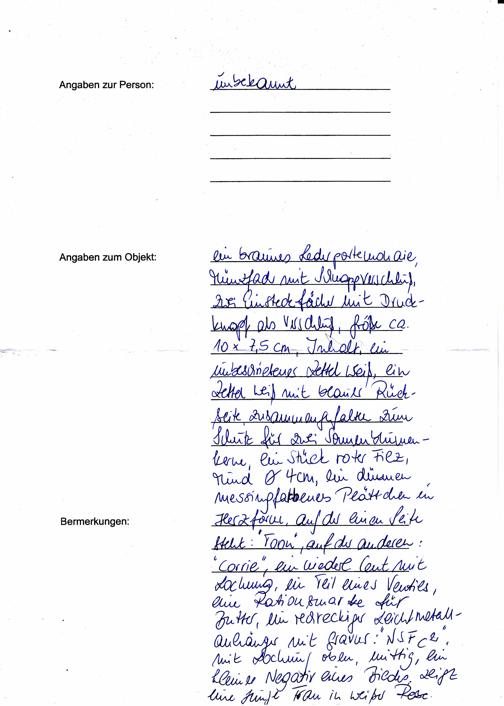 Angaben zur Person: unbekannt
Angaben zum Objekt: ein braunes Lederportemonaie,
Münzfach mit Schnappverschluß,
zwei Einsteckfächer mit Druck-
knopf als Verschluß, Größe ca.
10 x 7,5 cm, Inhalt, ein
unbeschriebener Zettel weiß, ein
Zettel weiß mit blauer Rück-
seite zusammengefaltet zum
Schutz für zwei Sonnenblumen-
kerne, ein Stück roter Filz,
rund Ø 4cm, ein dünnes
messingfarbenes Plättchen in
Bermerkungen: Herzform, auf der einen Seite
steht: "Toon", auf der anderen:
"Corrie", ein Cent mit
Lochung, ein Teil eines Venties,
eine Rationsmarke für
Butter, ein Leichtmetall-
anhänger mit Gravur:
mit Lochung oben, mittig, ein
kleines Negativ eines Bildes, zeigt
eine junge Frau in weißer